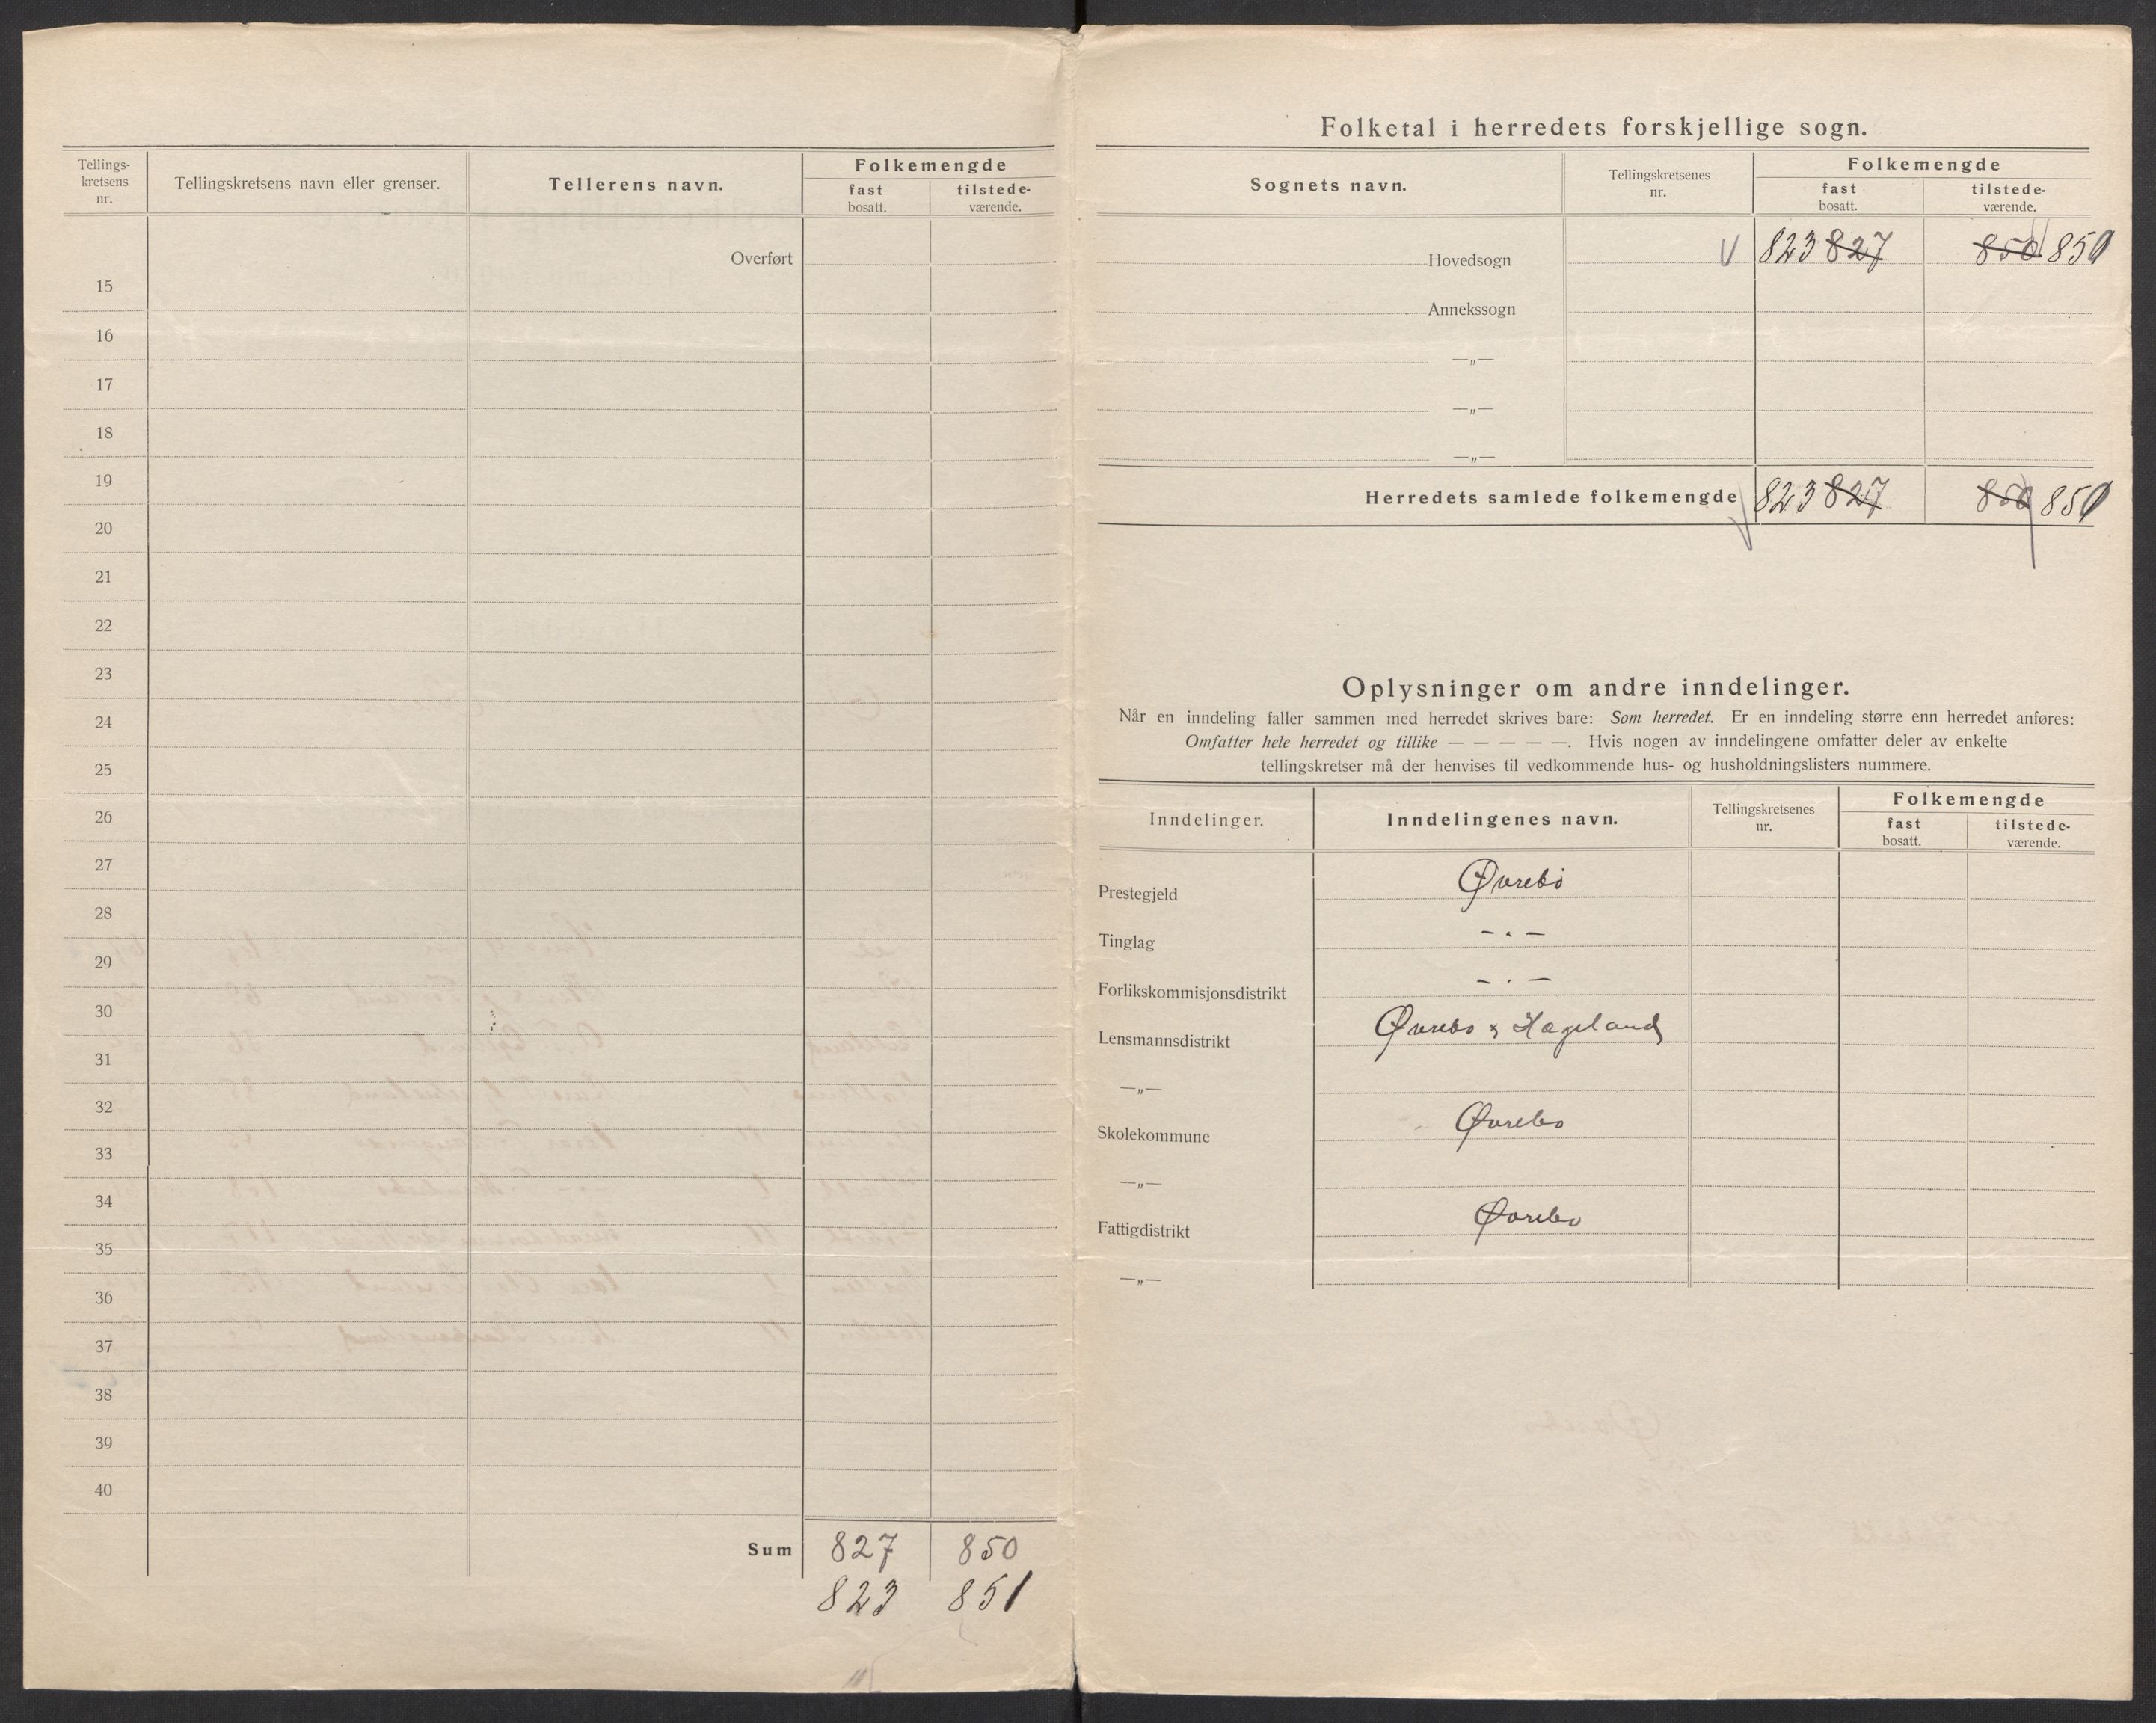 Tellings-
kretsens
nr.
Tellingskretsens navn eller grenser.
Tellerens navn.
Folkemengde
fast
bosatt.
tilstede-
værende.
Overført
15
16
17
18
19
20
21
22
23
24
25
26
27
28
29
30
31
32
33
34
35
36
37
38
39
40
Sum 827 850
823 851
Folketal i herredets forskjellige sogn.
Sognets navn.
Tellingskretsenes
nr.
Folkemengde
fast
bosatt.
tilstede-
værende.
Hovedsogn 823 827 850 851
Annekssogn
—„—
—„—
—„—
Herredets samlede folkemengde 823 827 850 851
Oplysninger om andre inndelinger.
Når en inndeling faller sammen med herredet skrives bare: Som herredet. Er en inndeling større enn herredet anføres:
Omfatter hele herredet og tillike — — — — —. Hvis nogen av inndelingene omfatter deler av enkelte
tellingskretser må der henvises til vedkommende hus- og husholdningslisters nummere.
Inndelinger.
Inndelingenes navn.
Tellingskretsenes
nr.
Folkemengde
fast
bosatt.
tilstede-
værende.
Prestegjeld Øvrebø
Tinglag — „ —
Forlikskommisjonsdistrikt — „ —
Lensmannsdistrikt Øvrebo & Hægeland
—„—
Skolekommune Øvrebo
—„—
Fattigdistrikt Øvrebo
—„—